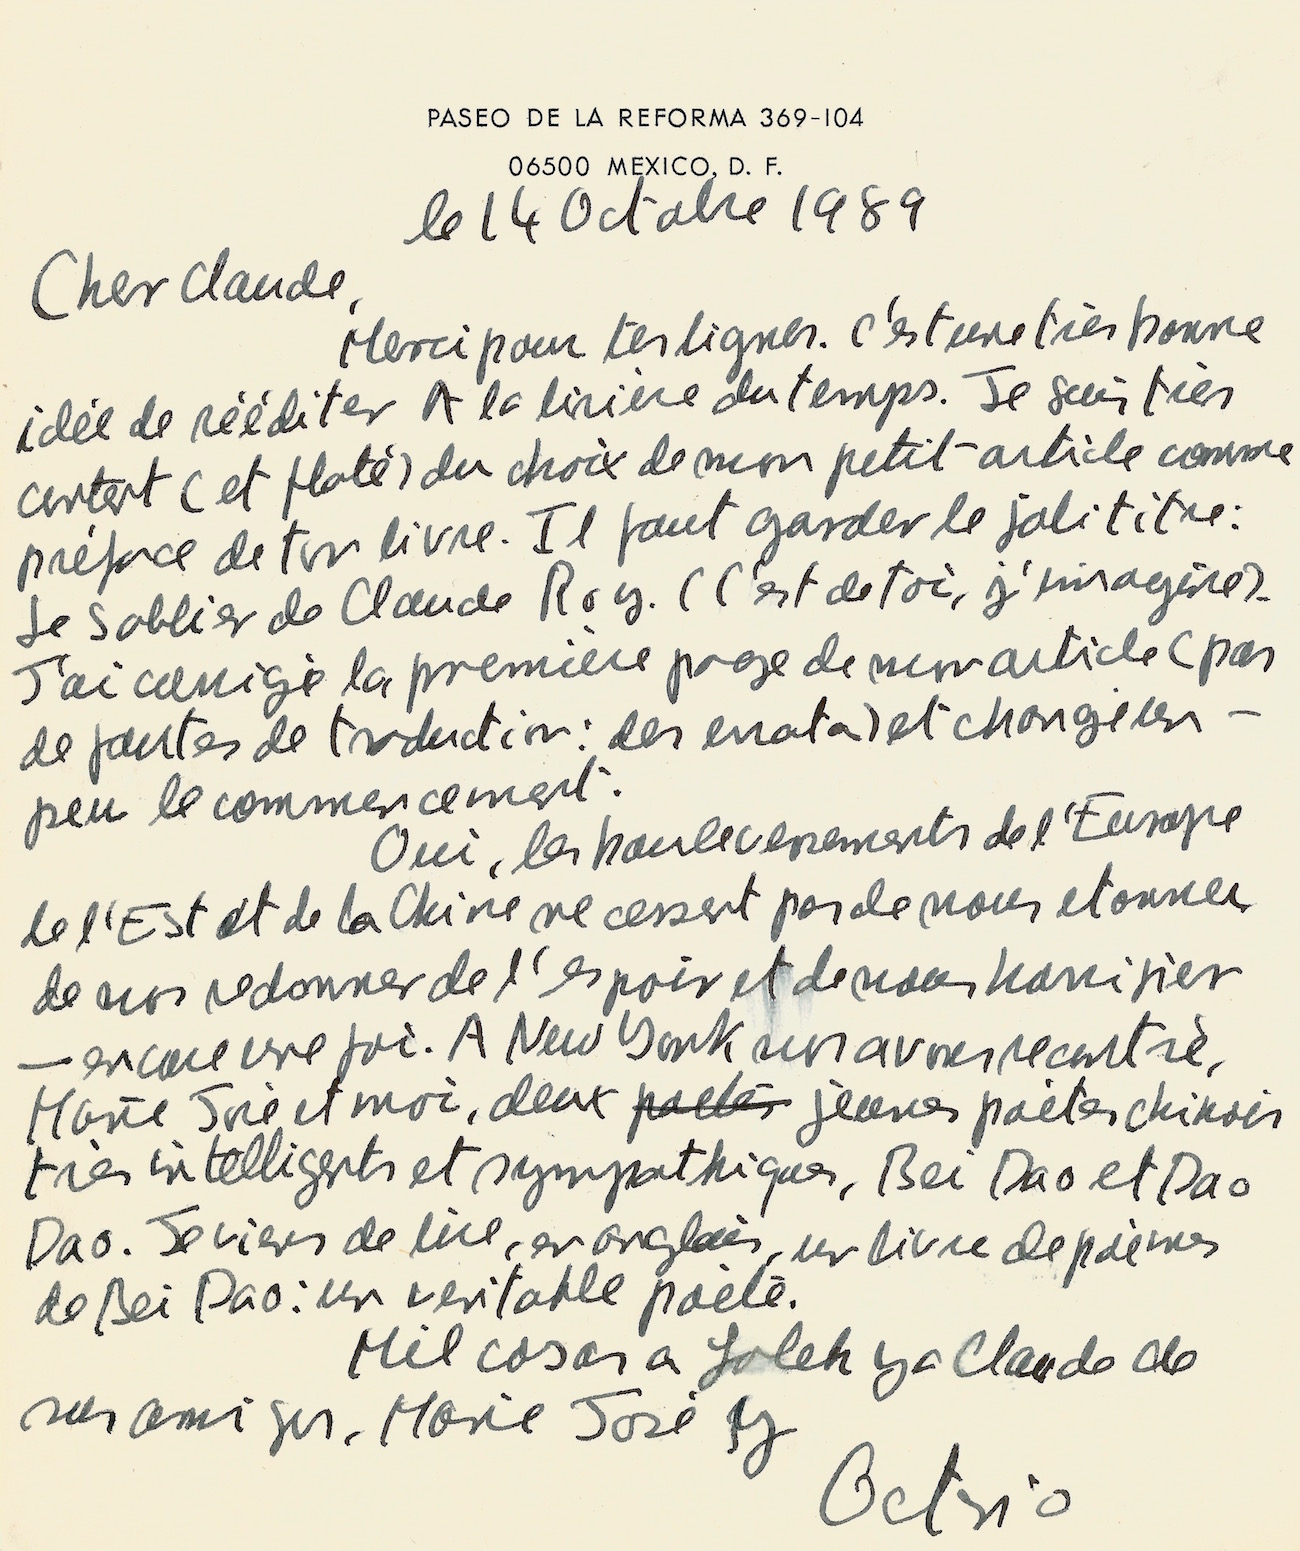 PASEO DE LA REFORMA 369-104
06500 MEXICO, D. F.
le 14 Octobre 1989
Cher Claude,
Merci pour tes lignes. C'est une très bonne
idée de rééditer A la lisière du temps. Je suis très
content (et flaté) du choix de mon petit-article comme
préface de ton livre. Il faut garder le joli titre:
Le Sablier de Claude Roy. (C'est de toi, j'imagine).
J'ai corrigé la première page de mon article (pas
de fautes de traduction: des errata) et changé un -
peu le commencement.
Oui, les boulevenements de l'Europe
de l'Est et de la Chine ne cessent pas de nous etonner,
de nos redonner de l'espoir et de nous horrifier
— encore une foi. A New York nos avons recontré,
Marie José et moi, deux poètes jeunes poètes chinois
très intelligents et sympathiques, Bei Dao et Dao
Dao. Je viens de lire, en anglais, un livre de poèmes
de Bei Dao: un veritable poète.
Mil cosas a Loleh y a Claude de
sus amigos, Marie José y
Octavio